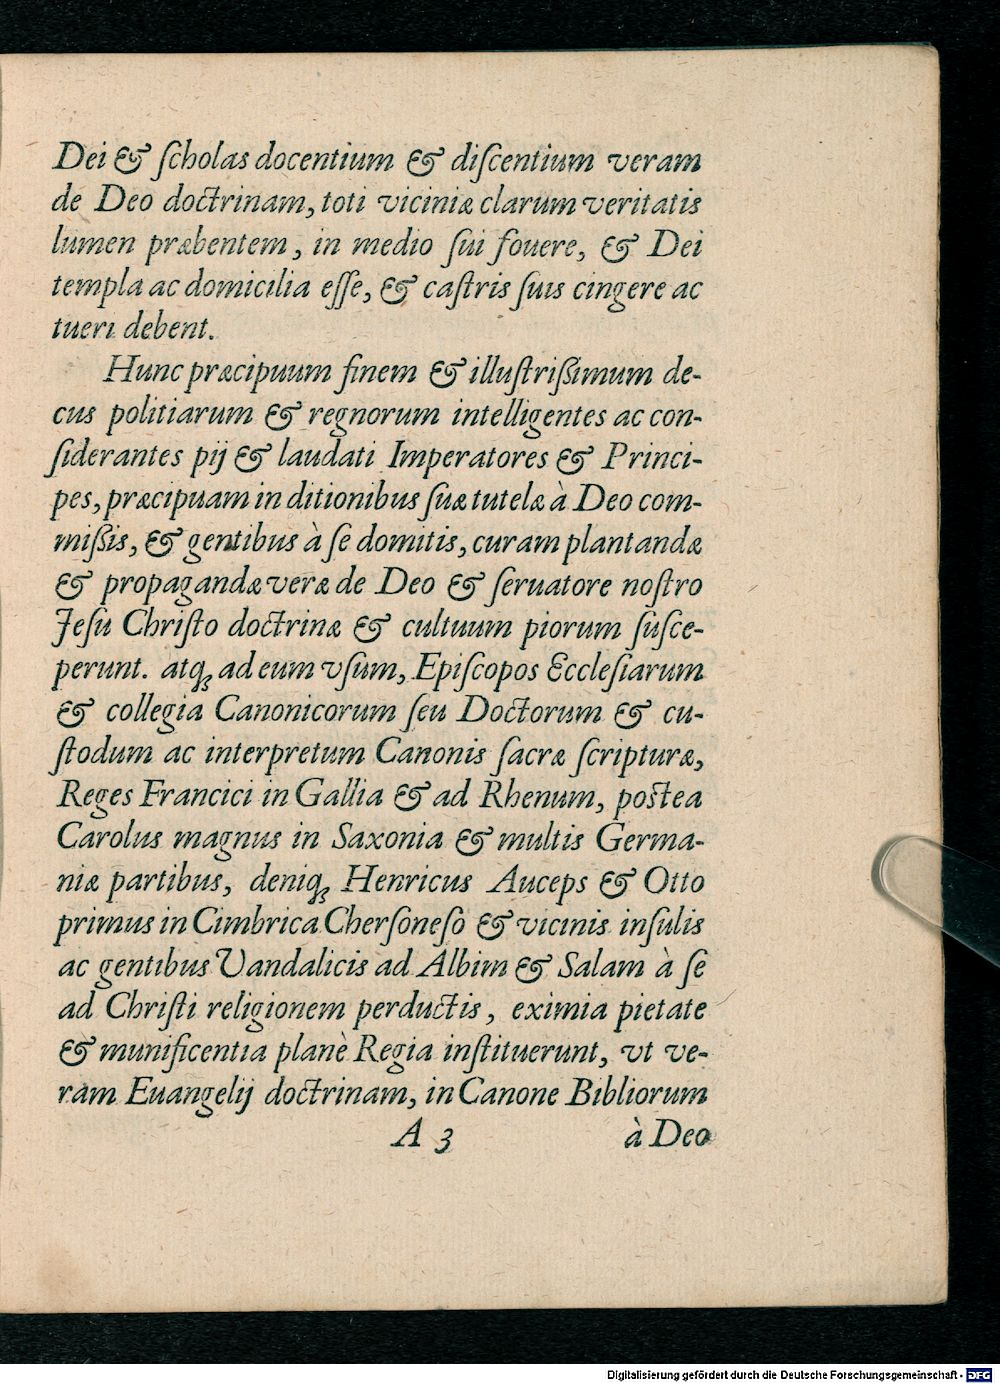 Dei & ſcholas docentium & diſcentium veram
de Deo doctrinam, toti viciniæ clarum veritatis
lumen præbentem, in medio ſui fouere, & Dei
templa ac domicilia eſſe, & caſtris ſuis cingere ac
tueri debent.
Hunc præcipuum finem & illuſtrißimum de-
cus politiarum & regnorum intelligentes ac con-
ſiderantes pij & laudati Imperatores & Princi-
pes, præcipuam in ditionibus ſuæ tutelæ à Deo com-
mißis, & gentibus à ſe domitis, curam plantandæ
& propagandæ veræ de Deo & ſeruatore noſtro
Jeſu Chriſto doctrinæ & cultuum piorum ſuſce-
perunt. atq; ad eum vſum, Epiſcopos Eccleſiarum
& collegia Canonicorum ſeu Doctorum & cu-
ſtodum ac interpretum Canonis ſacræ ſcripturæ,
Reges Francici in Gallia & ad Rhenum, postea
Carolus magnus in Saxonia & multis Germa-
niæ partibus, deniq; Henricus Auceps & Otto
primus in Cimbrica Cherſoneſo & vicinis inſulis
ac gentibus Vandalicis ad Albim & Salam à ſe
ad Chriſti religionem perductis, eximia pietate
& munificentia planè Regia inſtituerunt, vt ve-
ram Euangelij doctrinam, in Canone Bibliorum
A 3 à Deo
Digitalisierung gefördert durch die Deutsche Forschungsgemeinschaft - DFG